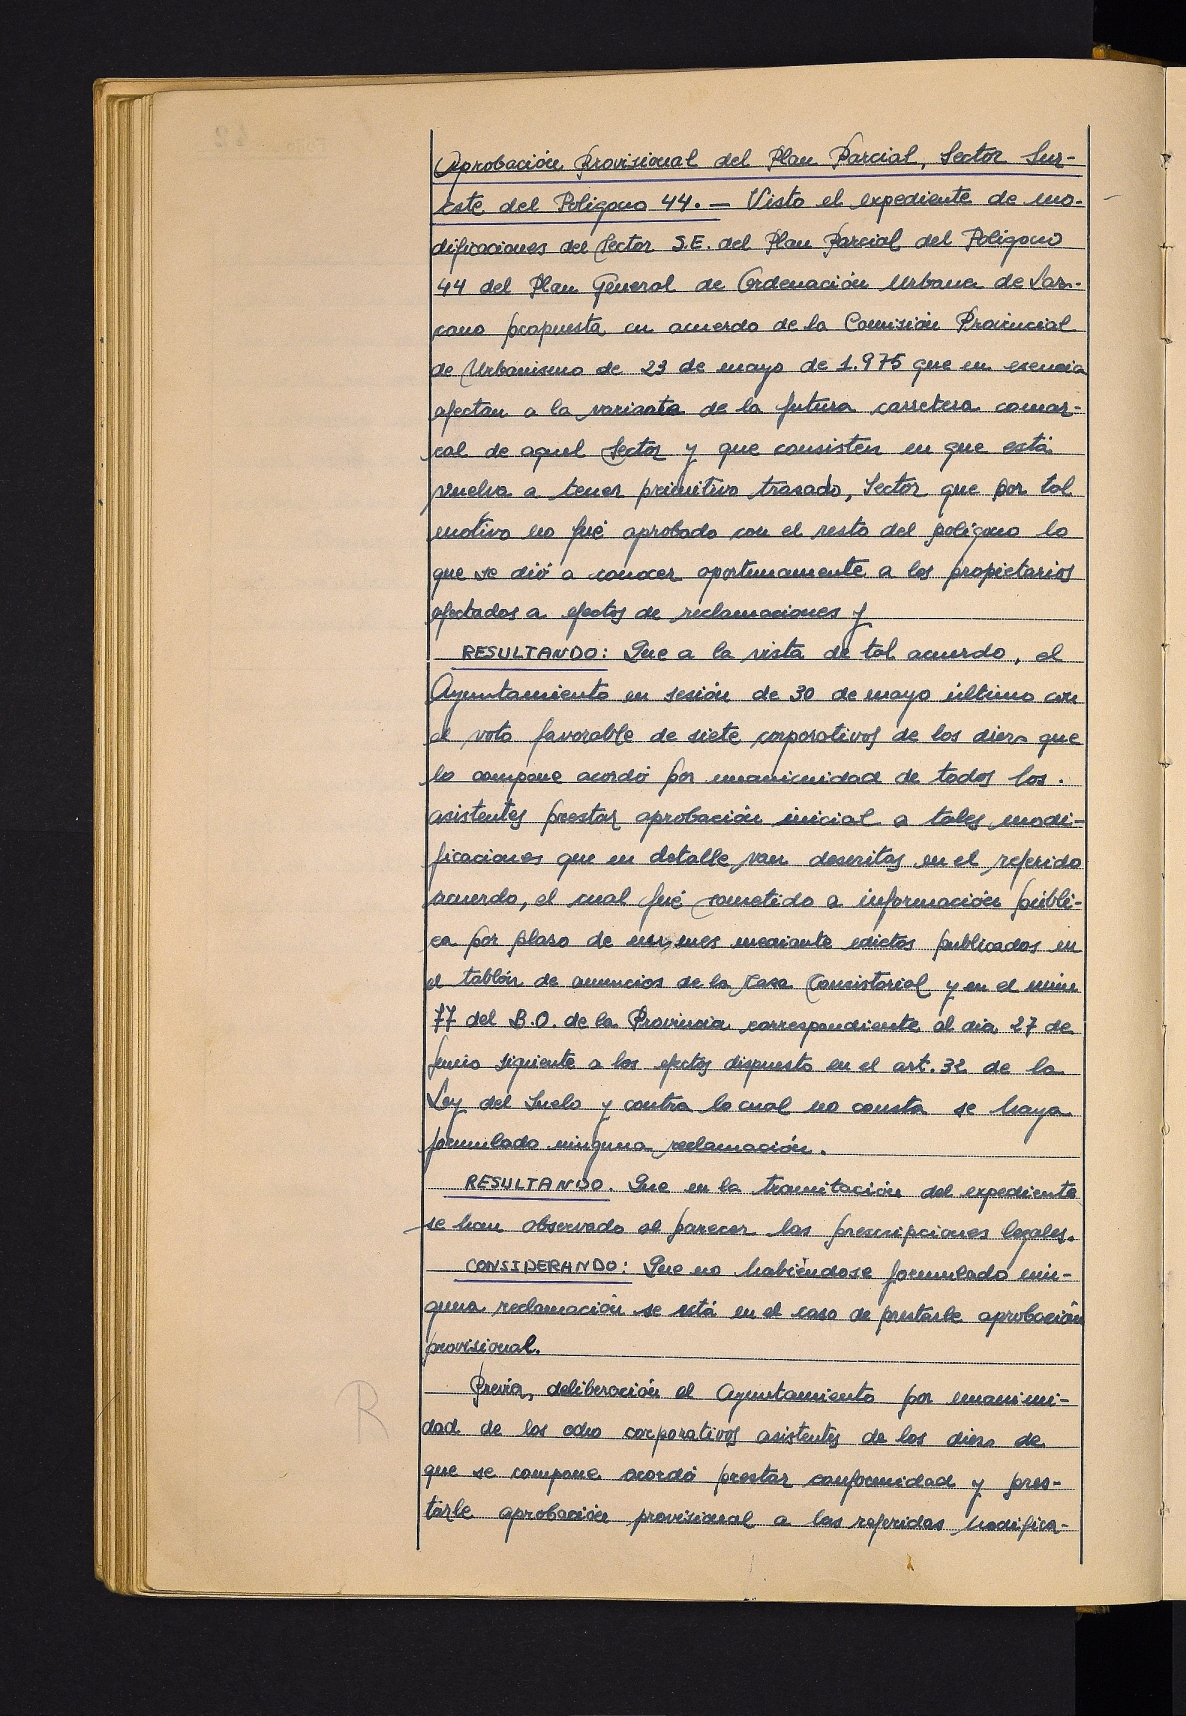 Aprobación Provisional del Plan Parcial, Sector Sur-
este del Poligono 44. — Visto el expediente de mo-
dificaciones del Sector S.E. del Plan Parcial del Poligono
44 del Plan General de Ordenación Urbana de Laz-
cano propuesta en acuerdo de la Comisión Provincial
de Urbanismo de 23 de mayo de 1.975 que en esencia
afectan a la variante de la futura carretera comar-
cal de aquel Sector y que consisten en que está
vuelva a tener primitivo trazado, Sector que por tal
motivo no fué aprobado con el resto del poligono lo
que se dió a conocer oportunamente a los propietarios
afectados a efectos de reclamaciones y
RESULTANDO: Que a la vista de tal acuerdo, el
Ayuntamiento en sesión de 30 de mayo último con
el voto favorable de siete corporativos de los diez que
lo compone acordó por unanimidad de todos los.
asistentes prestar aprobación inicial a tales modi-
ficaciones que en detalle van descritas en el referido
acuerdo, el cual fué sometido a información públi-
ca por plazo de un mes mediante edictos publicados en
el tablón de anuncios de la Casa Consistorial y en el núm
77 del B.O. de la Provincia correspondiente al dia 27 de
Junio siguiente a los efectos dispuesto en el art. 32 de la
Ley del Suelo y contra lo cual no consta se haya
formulado ninguna reclamación.
RESULTANDO. Que en la tramitación del expediente
se han observado al parecer las prescripciones legales.
CONSIDERANDO: Que no habiéndose formulado nin-
guna reclamación se está en el caso de prestarle aprobación
provisional.
Previa, deliberación el Ayuntamiento por unanimi-
dad de los ocho corporativos asistentes de los diez de
que se compone acordó prestar conformidad y pres-
tarle aprobación provisional a las referidas modifica-
R